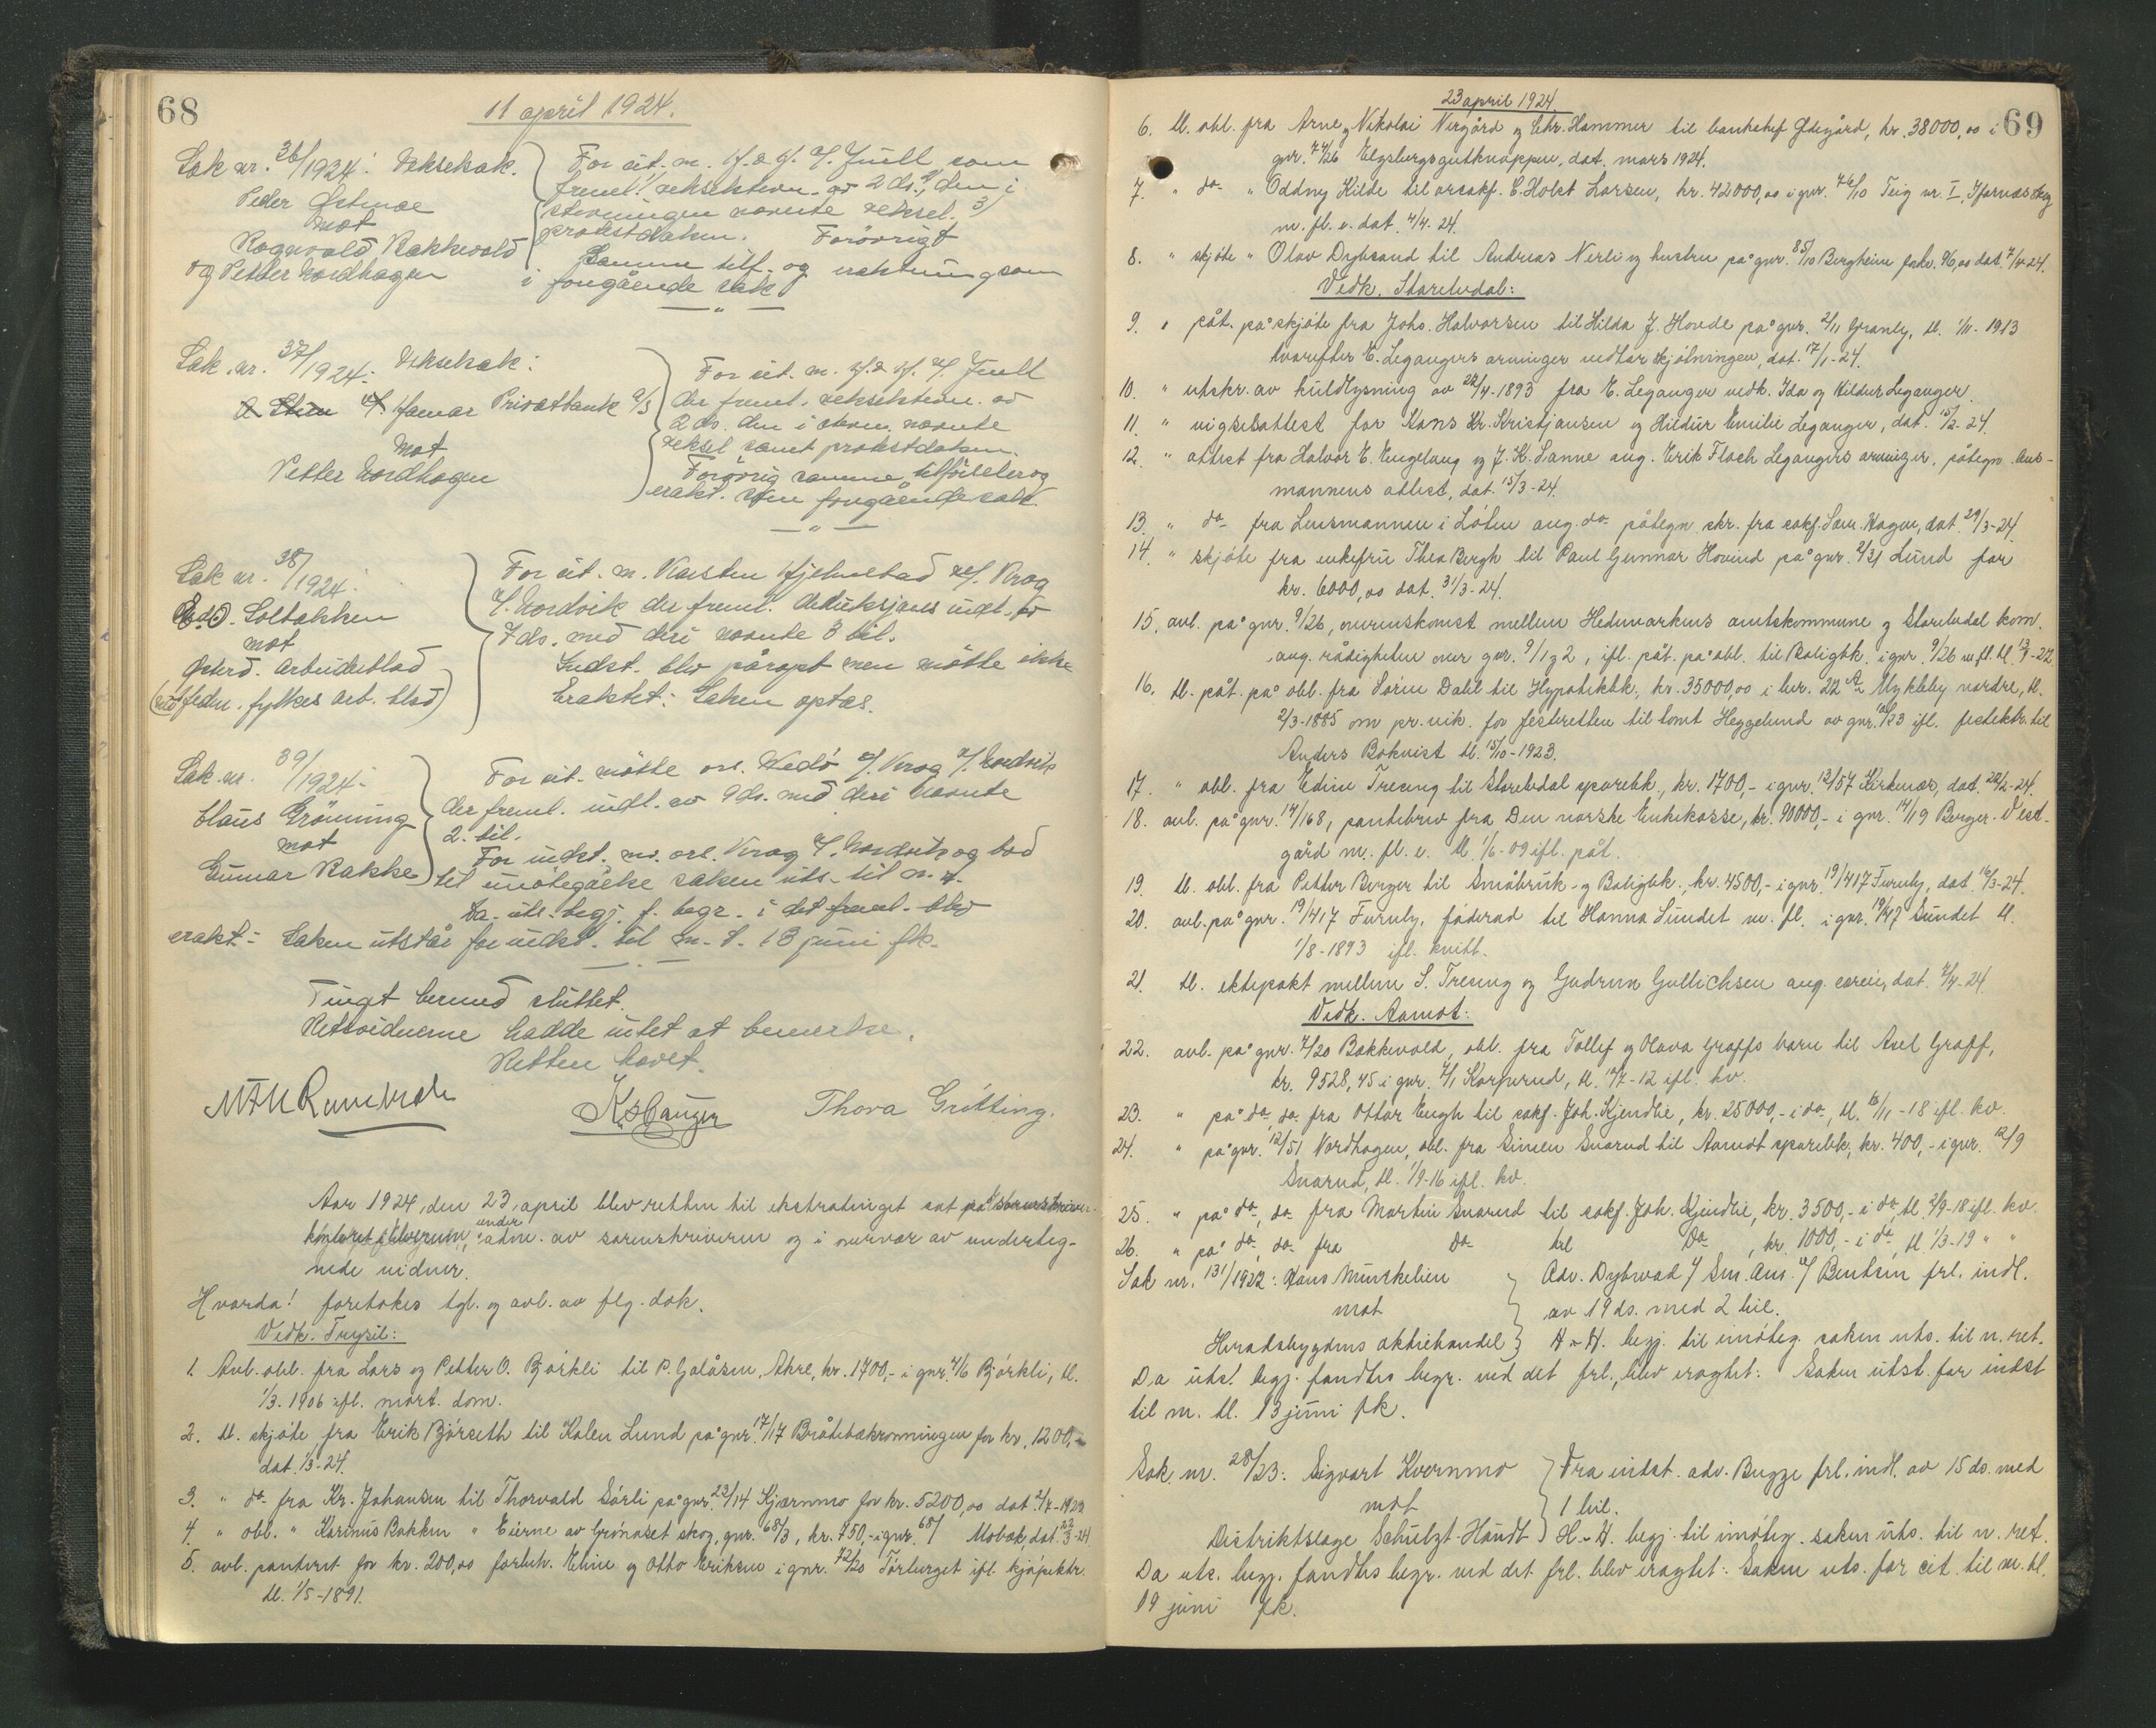 68
11 april 1924.
Sak nr. 36/1924: Vekselsak.
Peder Østmoe
mot
Rognvald Bakkevold
og Petter Nordhagen
For cit. m. sf. & sf. v/ Juell som
freml. vekselstevn. av 2 ds., den i
stevningen nævnte veksel. 3)
protestdokum. Forøvrigt
Samme tilf. og eraktning som
i forrgående sak
— " —
Sak nr. 37/1924: Vekselsak:
Hamar Privatbank A/S
mot
Petter Nordhagen
For cit. m. sf. & sf. v/ Juell
der freml. vekselstevn. av
2 ds. den i stevn. nævnte
veksel samt protestdokum.
Forøvrig samme tilførsler og
erakt. som forrgående sak.
— " —
Sak nr. 38/1924.
Ed. O. Soltakken
mot
Østerd. Arbeiderblad
(ved Hedm. fylkes arb. blad)
For cit. m. Karsten Hjelmstad v/ Krog
v/ Nordvik der freml. deduksjons indl. av
7 ds. med deri nævnte 3 bil.
Indst. blev påropt men møtte ikke
Eraktet: Saken optas.
Sak nr. 39/1924.
Claus Grönning
mot
Gunnar Bakke
For cit. møtte ors. Hedó v/ Krog v/ Nordvik
der freml. indl. av 9 ds. med deri nævnte
2 bil.
For indst. m. ors. Krog v/ Nordvik og bad
til imøtegåelse saken uts. til n. r.
Da uts. begj. f. begr. i det freml. blev
erakt: Saken utstår for indst. til m. t. 13 juni fk.
— . —
Tinget hermed sluttet.
Retsvidnerne hadde intet at bemerke.
Retten hævet.
Thora Grötting.
Aar 1924, den 23. april blev retten til ekstratinget sat på sorenskriver-
kontoret i Elverum, under adm. av sorenskriveren og i nærvær av underteg-
nede vidner.
Hvorda! foretokes tgl. og avl. av flg. dok.
Vedk. Trysil:
1. Avl. obl. fra Lars og Petter O. Bjørkli til P. Galåsen, Akre, kr. 1700,- i gnr. 4/6 Bjørkli, tl.
1/3. 1906 ifl. mort. dom.
2. tl. skjøte fra Erik Bjørseth til Kalen Lund på gnr. 17/17 Bråtebakrønningen for kr. 1200,-
dat. 1/3-24.
3. " do fra Kr. Johansen til Thorvald Sørli på gnr. 23/14 Kjærnmo for kr. 5200,00 dat. 2/4-1923
4. " obl. " Karinus Bakken " Eierne av Grønaset skog, gnr. 68/3, kr. 750,- i gnr. 68/ Mobæk, dat. 22/3-24
5. avl. panteret for kr. 200,00 forbeh. Eline og Otto Eriksen i gnr. 72/20 Tørberget ifl. kjøpektr.
tl. 1/5-1891.
23 april 1924.
69
6. tl. obl. fra Arne og Nikolai Nergård og Chr. Hammer til banksjef Ødegård, kr. 38000,00 i
gnr. 74/26 Elgsbergsgutknappen, dat. mars 1924.
7. " do " Oddny Kilde til orsakf. E. Holst Larsen, kr. 42000,00 i gnr. 76/10 Teig nr. I, Ifarnæs skog
m. fl. e. dat. 4/4-24.
8. " skjøte " Olav Dybsand til Andreas Nerli og hustru på gnr. 85/10 Bergheim for kr. 96,00 dat. 7/4-24.
Vedk. Storelvdal:
9. " påt. på skjøte fra Johs. Halvorsen til Hilda J. Hovde på gnr. 2/11 Granly, tl. 1/11-1913
hvorefter E. Legangers arvinger vedtar skjøtningen, dat. 17/1-24.
10. " utskr. av kuldlysning av 22/4-1893 fra E. Leganger vedk. Ida og Hildur Leganger.
11. " vigselsattest for Hans Kr. Kristjansen og Hildur Emilie Leganger, dat. 15/2-24.
12. " attest fra Halvor E. Engelaug og J. K. Sanne ang. Erik Flach Legangers arvinger, påtegn. lens-
mannens attest, dat. 15/3-24.
13. " do fra Lensmannen i Løten ang. do påtegn. skr. fra sakf. Sam. Hagen, dat. 29/3-24.
14. " skjøte fra enkefru Thea Bergh til Paul Gunnar Hovind på gnr. 2/31 Lund for
kr. 6000,00 dat. 31/3-24.
15. avl. på gnr. 9/26, overenskomst mellem Hedmarkens amtskommune og Storelvdal kom.
ang. rådigheten over gnr. 9/1 og 2, ifl. påt. på obl. til Boligbk. i gnr. 9/26 m fl tl. 13/9-22
16. tl. påt. på obl. fra Søren Dahl til Hypotekbk., kr. 35000,00 i lnr. 22 A Mykleby nordre, tl.
2/3-1885 om pr. vik. for festeretten til tomt Heggelund av gnr. 10/23 ifl. festektr. til
Anders Bokvist tl. 15/10-1923.
17. " obl. fra Edin Treseng til Storelvdal sparebk., kr. 1700,- i gnr. 12/57 Kirkenæs, dat. 22/2-24.
18. avl. på gnr. 14/168, pantebrev fra Den norske Enkekasse, kr. 90000,- i gnr. 14/19 Berger-Vest-
gård m. fl. e. tl. 1/6-09 ifl. påt.
19. tl. obl. fra Petter Berger til Småbruk- og Boligbk., kr. 4500,- i gnr. 19/417 Furuly, dat. 16/3-24.
20. avl. på gnr. 19/417 Furuly, føderåd til Hanna Sundet m. fl. i gnr. 19/47 Sundet tl.
1/8-1893 ifl. kvitt.
21. tl. ektepakt mellem S. Treseng og Gudrun Gullichsen ang. særeie, dat. 7/4-24.
Vedk. Aamot:
22. avl. på gnr. 7/20 Bakkevold, obl. fra Tollef og Olava Graffs barn til Axel Graff,
kr. 9528,45 i gnr. 7/1 Korperud, tl. 19/7-12 ifl. kv.
23. " på do, do fra Ottar Engh til sakf. Joh. Kjendlie, kr. 25000,- i do, tl. 16/11-18 ifl. kv.
24. " på gnr. 12/51 Nordhagen, obl. fra Simen Snarud til Aamot sparebk, kr. 400,- i gnr. 12/9
Snarud, tl. 1/9-16 ifl. kv.
25. " på do, do fra Martin Snarud til sakf. Joh. Kjendlie, kr. 3500,- i do, tl. 2/9-18 ifl. kv.
26. " på do, do fra Do til Do, kr. 1000,- i do, tl. 1/3-19 " "
Sak nr. 131/1922: Hans Munkelien
mot
Heradsbygdens aktiehandel
Adv. Dybwad v/ Sm. Aas v/ Bentsen frl. indl.
av 19 ds. med 2 bil.
H-A. begj. til imøteg. saken uts. til n. ret.
Da utst begj. fandtes begr. ved det frl., blev eragtet: Saken utst. for indst
til m. tl. 13 juni fk.
Sak nr. 28/23: Sigvart Kvernmo
mot
Distriktslæge Schulzt-Haudt
Fra indst. adv. Bugge frl. indl. av 15 ds. med
1 bil.
H-A. begj. til imøteg. saken uts. til n. ret.
Da uts. begj. fandtes begr. ved det frl. blev eragtet: Saken uts. for cit. til m. tl.
19 juni fk.